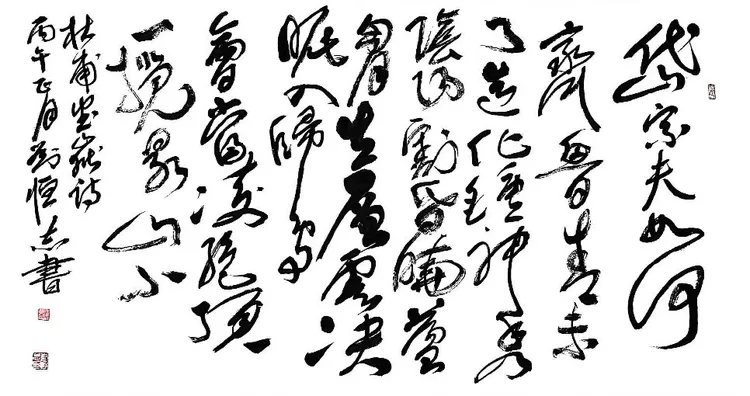 岱宗夫如何
齊魯青未
了造化鍾神秀
陰陽割昏曉蕩
胷生層雲决
眦入歸鳥
會當凌絕頂
一覽衆山小
杜甫望嶽詩
丙午正月劉恒志書